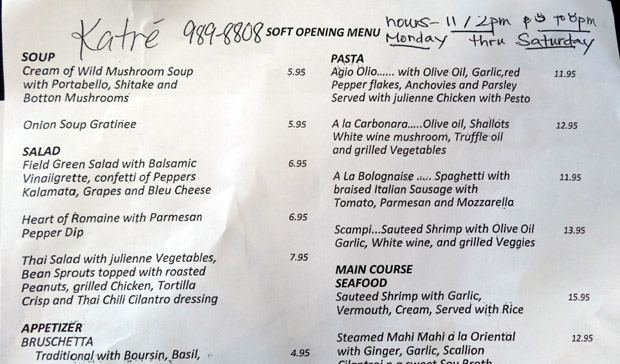 Katré 989-8808 SOFT OPENING MENU hours- 11/2pm to 8pm
Monday thru Saturday
SOUP
Cream of Wild Mushroom Soup 5.95
with Portabello, Shitake and
Botton Mushrooms
Onion Soup Gratinee 5.95
SALAD
Field Green Salad with Balsamic 6.95
Vinaiigrette, confetti of Peppers
Kalamata, Grapes and Bleu Cheese
Heart of Romaine with Parmesan 6.95
Pepper Dip
Thai Salad with julienne Vegetables, 7.95
Bean Sprouts topped with roasted
Peanuts, grilled Chicken, Tortilla
Crisp and Thai Chili Cilantro dressing
APPETIZER
BRUSCHETTA
Traditional with Boursin, Basil, 4.95
PASTA
Agio Olio...... with Olive Oil, Garlic,red 11.95
Pepper flakes, Anchovies and Parsley
Served with julienne Chicken with Pesto
A la Carbonara.....Olive oil, Shallots 12.95
White wine mushroom, Truffle oil
and grilled Vegetables
A La Bolognaise ..... Spaghetti with 11.95
braised Italian Sausage with
Tomato, Parmesan and Mozzarella
Scampi...Sauteed Shrimp with Olive Oil 13.95
Garlic, White wine, and grilled Veggies
MAIN COURSE
SEAFOOD
Sauteed Shrimp with Garlic, 15.95
Vermouth, Cream, Served with Rice
Steamed Mahi Mahi a la Oriental 12.95
with Ginger, Garlic, Scallion
Cilantro n a sweet Soy Broth